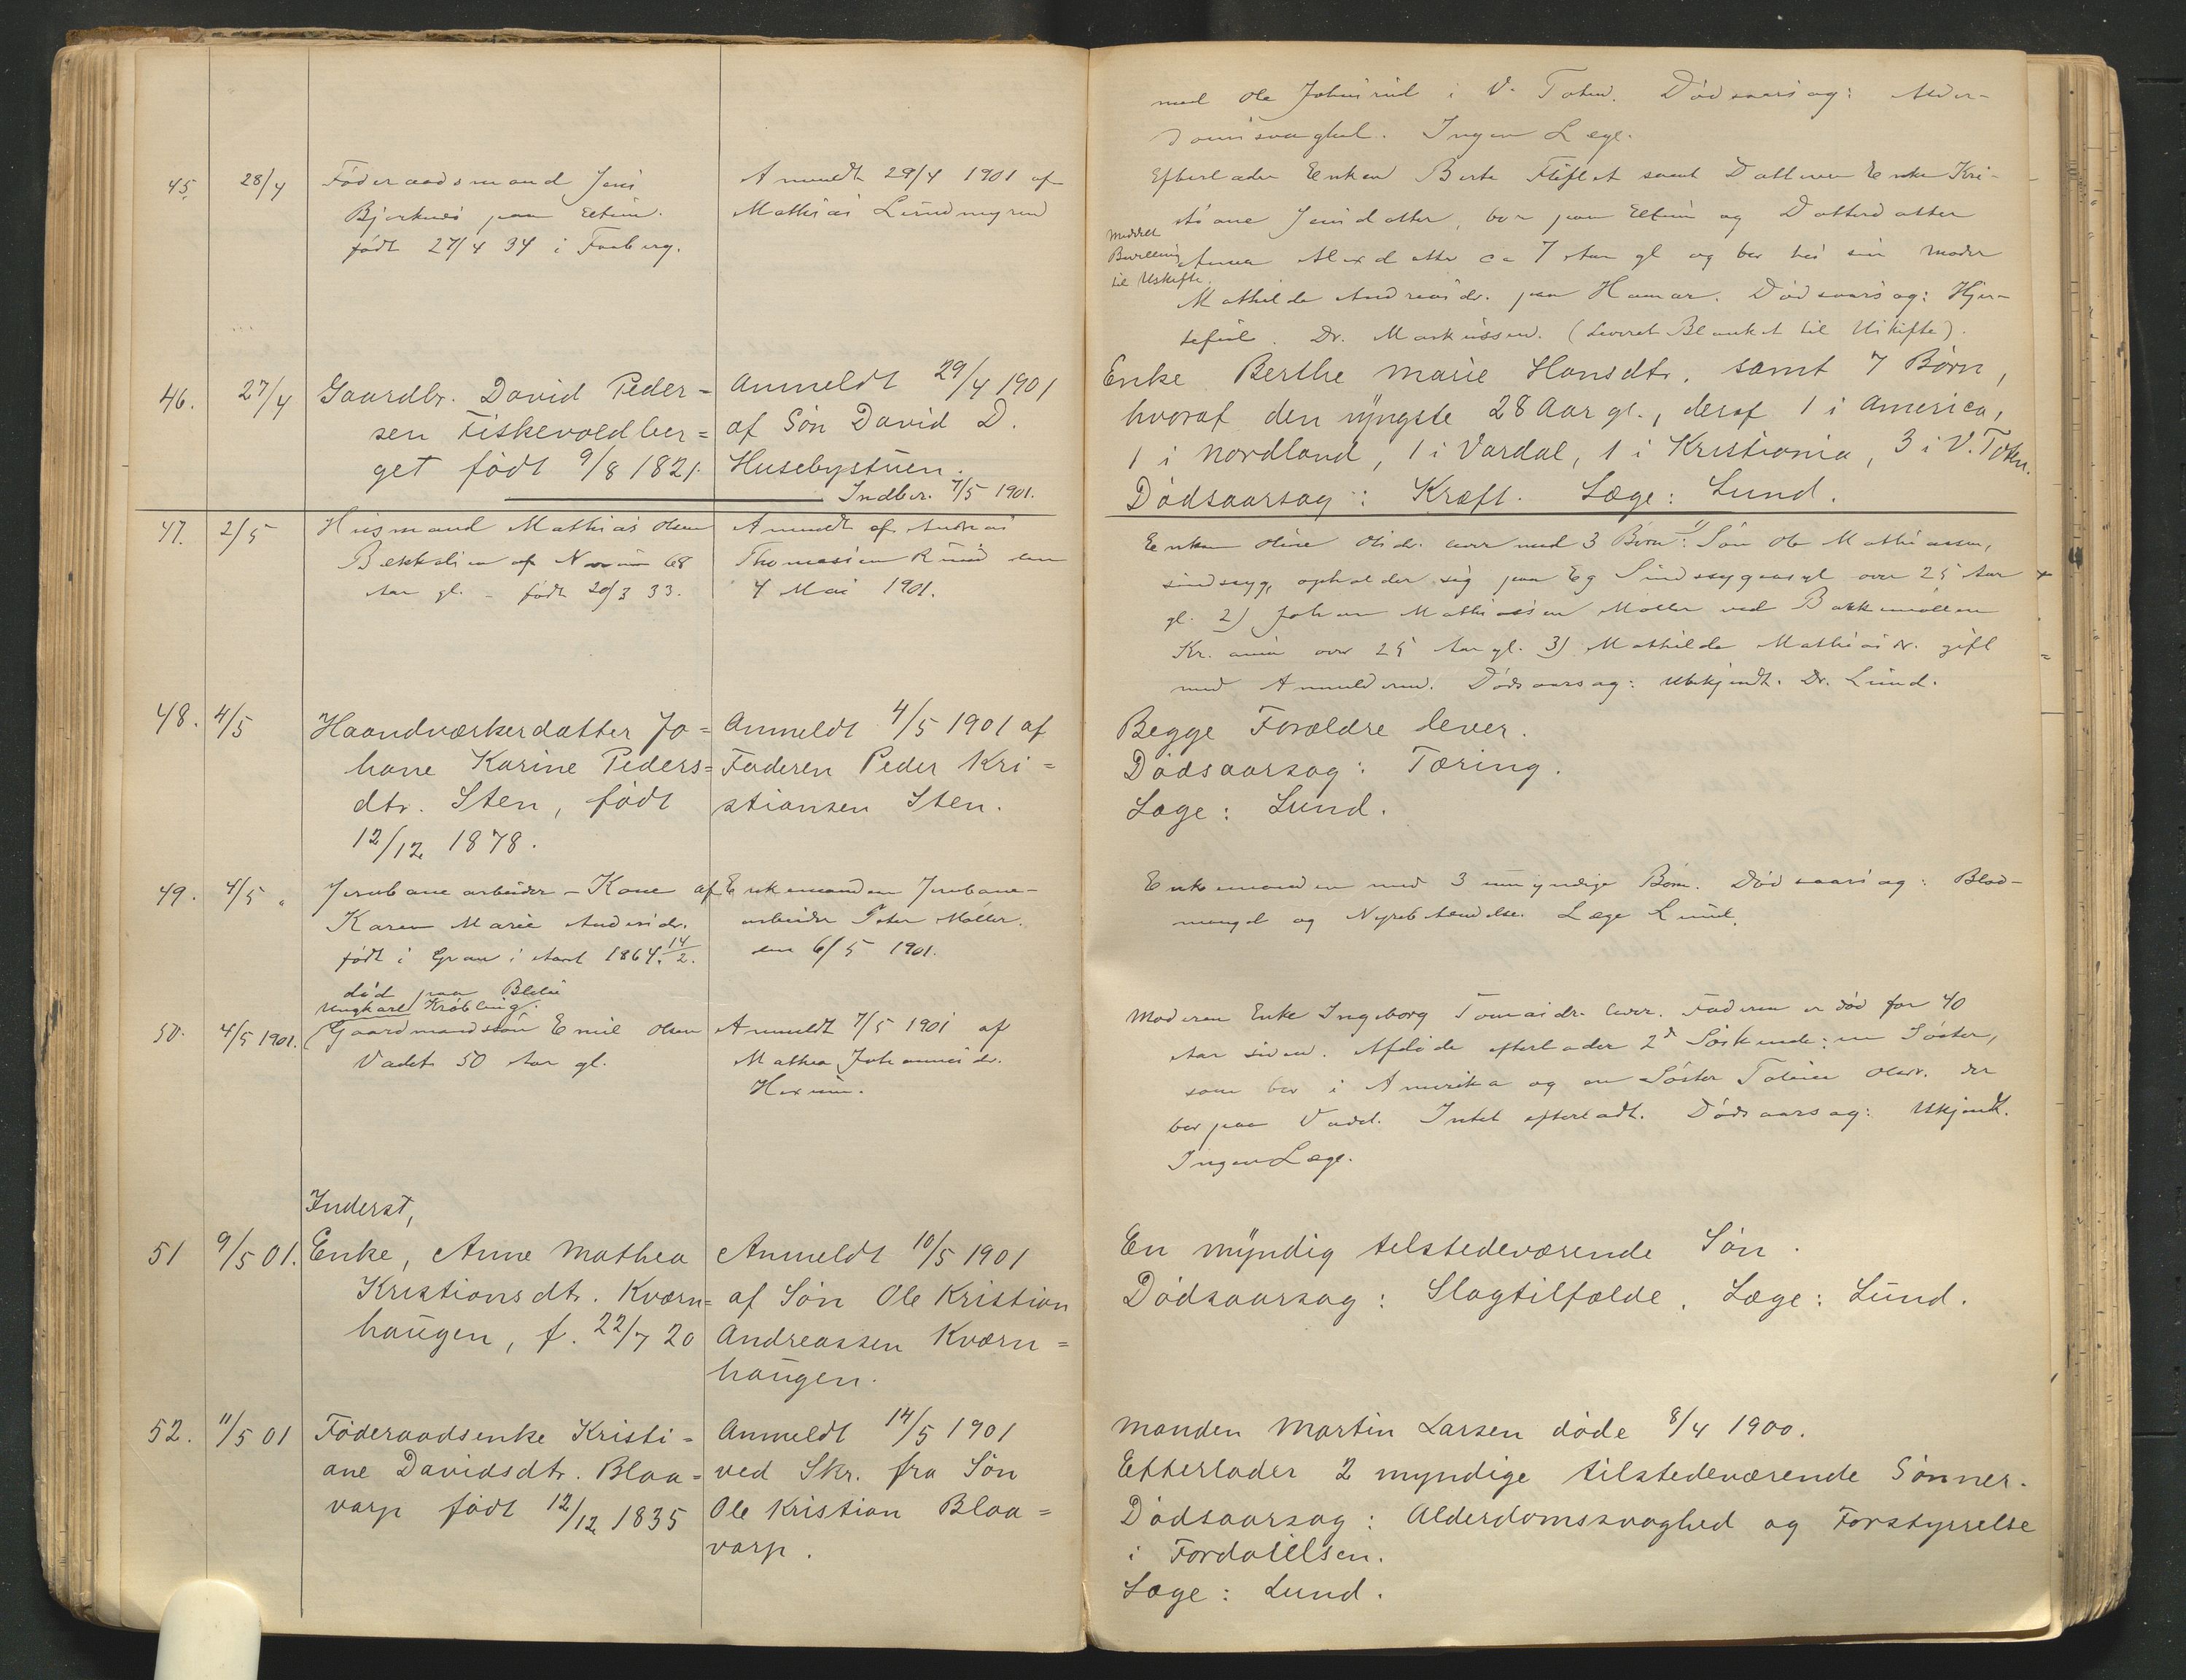 med Ole i V. Toten. Dødsaarsag: Alder-
domsvaghed. Ingen Læge.
45. 28/4 Føderaadsmand Jens
Bjørknes paa
født 27/4 34 i Faaberg.
Anmeldt 29/4 1901 af
Mathias Lundmyren
Efterlader Enken Berte samt Datteren Enke Kri-
stiane Jensdatter, bor paa og Datterdatter
Meddelt
Bevilling
til Uskifte.
Anna ca 7 Aar gl og bor hos sin Moder
Mathilde Andreasdr. paa Hamar. Dødsaarsag: Hjer-
tefeil. Dr. Markussen. (Leveret Blanket til Uskifte).
46. 27/4 Gaardbr. David Peder-
sen Fiskevoldber=
get født 9/8 1821.
Anmeldt 29/4 1901
af Søn David D.
Husebystuen.
Indber. 7/5 1901.
Enke Berthe Marie Hansdtr. samt 7 Børn,
hvoraf den yngste 28 Aar gl., deraf 1 i America,
1 i Nordland, 1 i Vardal, 1 i Kristiania, 3 i V. Toten.
Dødsaarsag: Kræft. Læge: Lund.
47. 2/5 Husmand Mathias Olsen
Bækkelien af 68
Aar gl. - født 20/3 33.
Anmeldt af Andreas
Thomassen Ruud den
4 Mai 1901.
Enken Oline Olsdr. lever med 3 Børn: 1) Søn Ole Mathiassen,
sindssyg, opholder sig paa Eg Sindssygeasyl over 25 Aar
gl. 2) Johan Mathiassen Møller ved
Kr.ania over 25 Aar gl. 3) Mathilde Mathiasdr. gift
med Anmelderen. Dødsaarsag: Ubekjendt. Dr. Lund.
48. 4/5 Haandværkerdatter Jo=
hane Karine Peders=
dtr. Sten, født
12/12 1878.
Anmeldt 4/5 1901 af
Faderen Peder Kri=
stiansen Sten.
Begge Forældre lever.
Dødsaarsag: Tæring.
Læge: Lund.
49. 4/5 " Jernbanearbeider-Kone
Karen Marie Andersdr.
født i Gran i Aaret 1864. 14/2.
død paa
af Enkemanden Jernbane-
arbeider Peter Møller.
den 6/5 1901.
Enkemanden med 3 umyndige Børn. Dødsaarsag: Blod-
mangel og Nyrebetændelse. Læge Lund.
Ungkarl Krøbling.
50. 4/5 1901. (Gaardmandssøn Emil Olsen
Vadet 50 Aar gl.
Anmeldt 7/5 1901 af
Mathea Johannesdr.
Moderen Enke Ingeborg Tomasdr. lever. Faderen er død for 40
Aar siden. Afdøde efterlader 2 Søskende: en Søster,
som bor i Amerika og en Søster Oline Olsdr. der
bor paa Vadet. Intet efterladt. Dødsaarsag: Ukjendt.
Ingen Læge.
Inderst,
51 9/5 01. Enke, Anne Mathea
Kristiansdtr. Kværn=
haugen, f. 22/7 20
Anmeldt 10/5 1901
af Søn Ole Kristian
Andreassen Kværn=
haugen.
En myndig tilstedeværende Søn.
Dødsaarsag: Slagtilfælde. Læge: Lund.
52. 11/5 01 Føderaadsenke Kristi=
ane Davidsdtr. Blaa=
varp født 12/12 1835
Anmeldt 14/5 1901
ved Skr. fra Søn
Ole Kristian Blaa=
varp.
Manden Martin Larsen døde 8/4 1900.
Efterlader 2 myndige tilstedeværende Sønner.
Dødsaarsag: Alderdomssvaghed og Forstyrrelse
i Fordøielsen.
Læge: Lund.